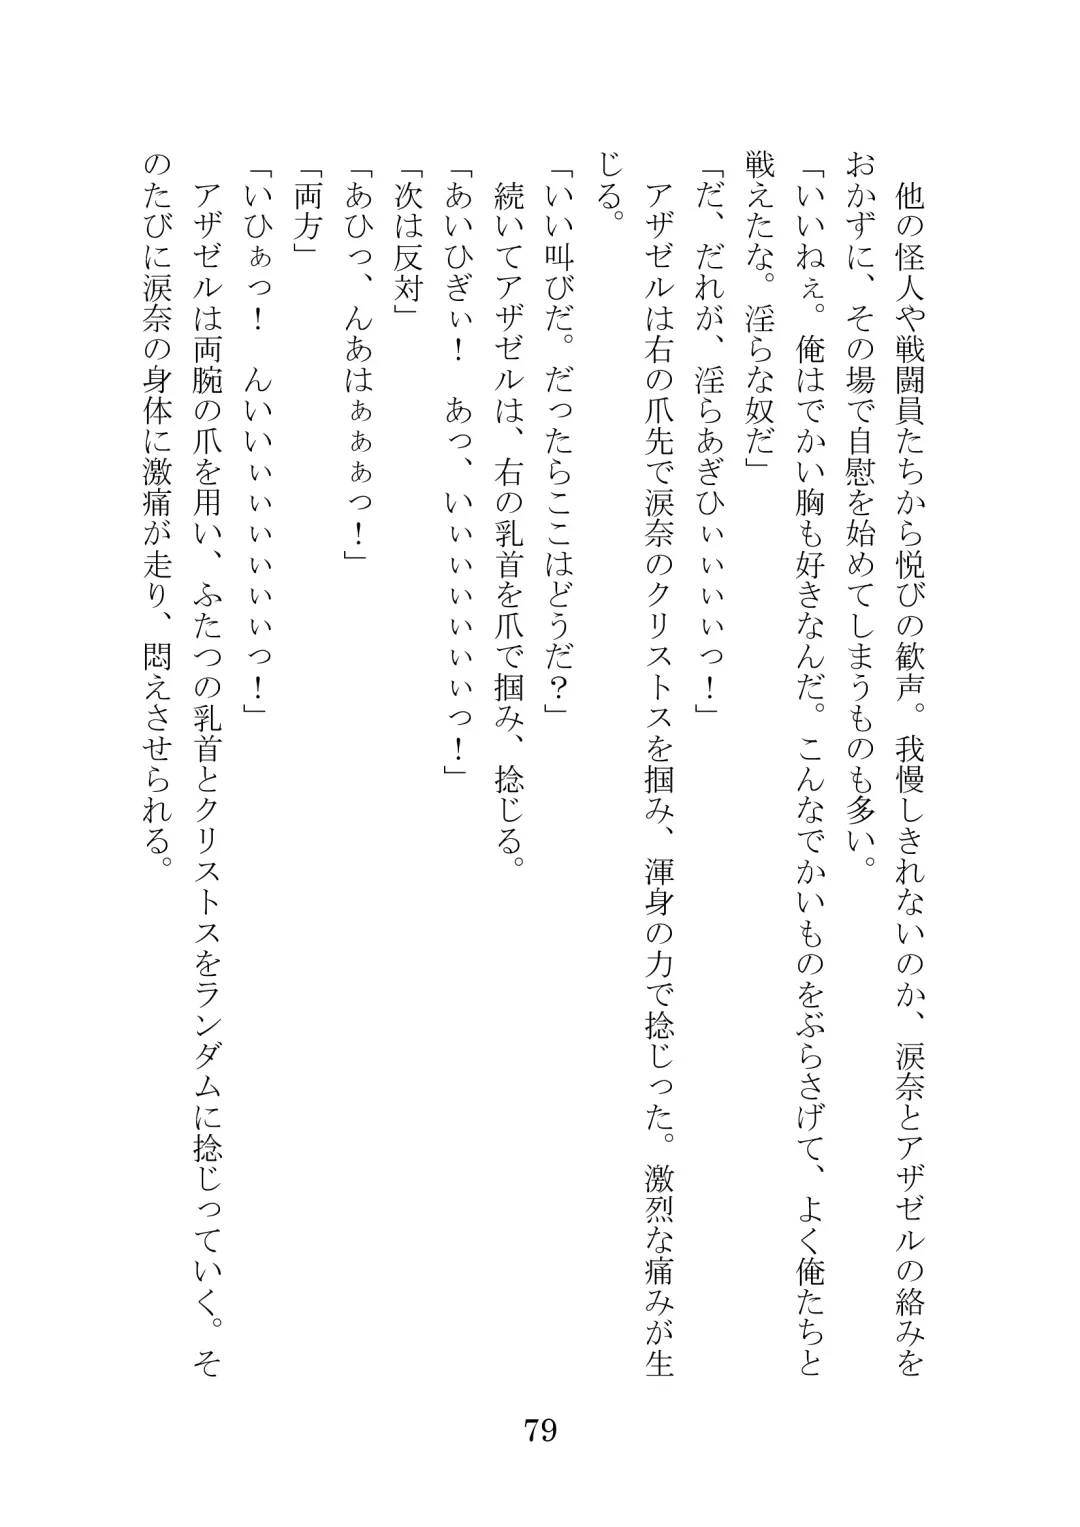 他の怪人や戦闘員たちから悦びの歓声。我慢しきれないのか、涙奈とアザゼルの絡みを
おかずに、その場で自慰を始めてしまうものも多い。
「いいねぇ。俺はでかい胸も好きなんだ。こんなでかいものをぶらさげて、よく俺たちと
戦えたな。淫らな奴だ」
「だ、だれが、淫らあぎひぃぃぃぃっ！」
　アザゼルは右の爪先で涙奈のクリストスを掴み、渾身の力で捻じった。激烈な痛みが生
じる。
「いい叫びだ。だったらここはどうだ？」
　続いてアザゼルは、右の乳首を爪で掴み、捻じる。
「あいひぎぃ！　あっ、いぃぃぃぃぃぃっ！」
「次は反対」
「あひっ、んあはぁぁぁっ！」
「両方」
「いひぁっ！　んいいぃぃぃぃぃぃっ！」
　アザゼルは両腕の爪を用い、ふたつの乳首とクリストスをランダムに捻じっていく。そ
のたびに涙奈の身体に激痛が走り、悶えさせられる。
79